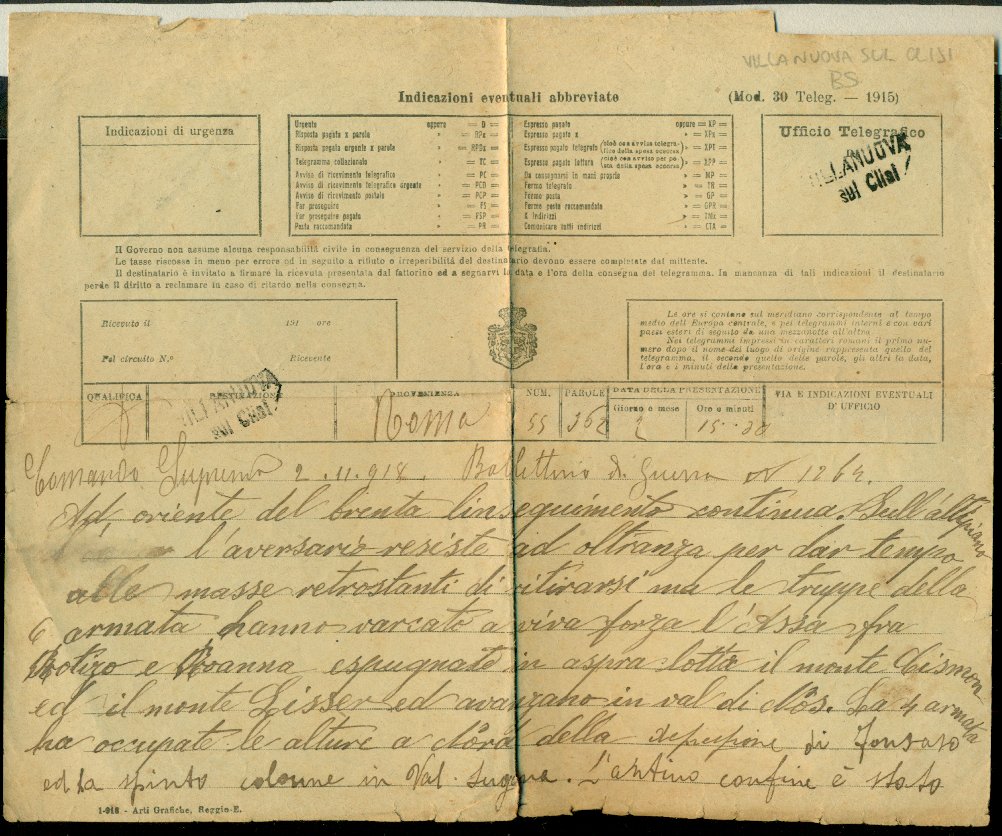 VILLANUOVA SUL CLISI
BS
Indicazioni eventuali abbreviate
(Mod. 30 Teleg. — 1915)
Indicazioni di urgenza
Urgente oppure = D =
Risposta pagata x parole » = RPx =
Risposta pagata urgente x parole » = RPDx =
Telegramma collazionato » = TC =
Avviso di ricevimento telegrafico » = PC =
Avviso di ricevimento telegrafico urgente » = PCD =
Avviso di ricevimento postale » = PCP =
Far proseguire » = FS =
Far proseguire pagato » = FSP =
Posta raccomandata » = PR =
Espresso pagato oppure = XP =
Espresso pagato x » = XPx =
Espresso pagato telegrafo (cioè con avviso telegrafico della spesa occorsa) » = XPT =
Espresso pagato lettera (cioè con avviso per posta della spesa occorsa) » = XPP =
Da consegnarsi in mani proprie » = MP =
Fermo telegrafo » = TR =
Fermo posta » = GP =
Fermo posta raccomandata » = GPR =
X Indirizzi » = TMx =
Comunicare tutti indirizzi » = CTA =
Ufficio Telegrafico
VILLANUOVA
sul Clisi
Il Governo non assume alcuna responsabilità civile in conseguenza del servizio della telegrafia.
Le tasse riscosse in meno per errore od in seguito a rifiuto o irreperibilità del destinatario devono essere completate dal mittente.
Il destinatario è invitato a firmare la ricevuta presentata dal fattorino ed a segnarvi la data e l'ora della consegna del telegramma. In mancanza di tali indicazioni il destinatario
perde il diritto a reclamare in caso di ritardo nella consegna.
Ricevuto il 191 ore
Pel circuito N.º Ricevente
Le ore si contano sul meridiano corrispondente al tempo
medio dell'Europa centrale, e pei telegrammi interni e con vari
paesi esteri di seguito da una mezzanotte all'altra.
Nei telegrammi impressi in caratteri romani il primo nu-
mero dopo il nome del luogo di origine rappresenta quello del
telegramma, il secondo quello delle parole, gli altri la data,
l'ora e i minuti della presentazione.
QUALIFICA DESTINAZIONE PROVENIENZA NUM. PAROLE DATA DELLA PRESENTAZIONE VIA E INDICAZIONI EVENTUALI
Giorno e mese Ore e minuti D'UFFICIO
VILLANUOVA
sul Clisi
Roma 55 362 2 15.30
Comando Supremo 2.11.918. Bollettino di Guerra N 1264.
Ad oriente del brenta linseguimento continua. Sull'altipiano
l'aversario resiste ad oltranza per dar tempo
alle masse retrostanti di ritirarsi ma le truppe della
6 armata hanno varcato a viva forza l'Assa fra
Rotzo e Roanna espugnate in aspra lotta il monte Cismon
ed il monte Lisser ed avanzano in val di Nos. La 4 armata
ha occupate le alture a Nord della depressione di Fonzaso
ed ha spinto colonne in Val Sugana. L'antino confine è stato
1-918 - Arti Grafiche, Reggio-E.